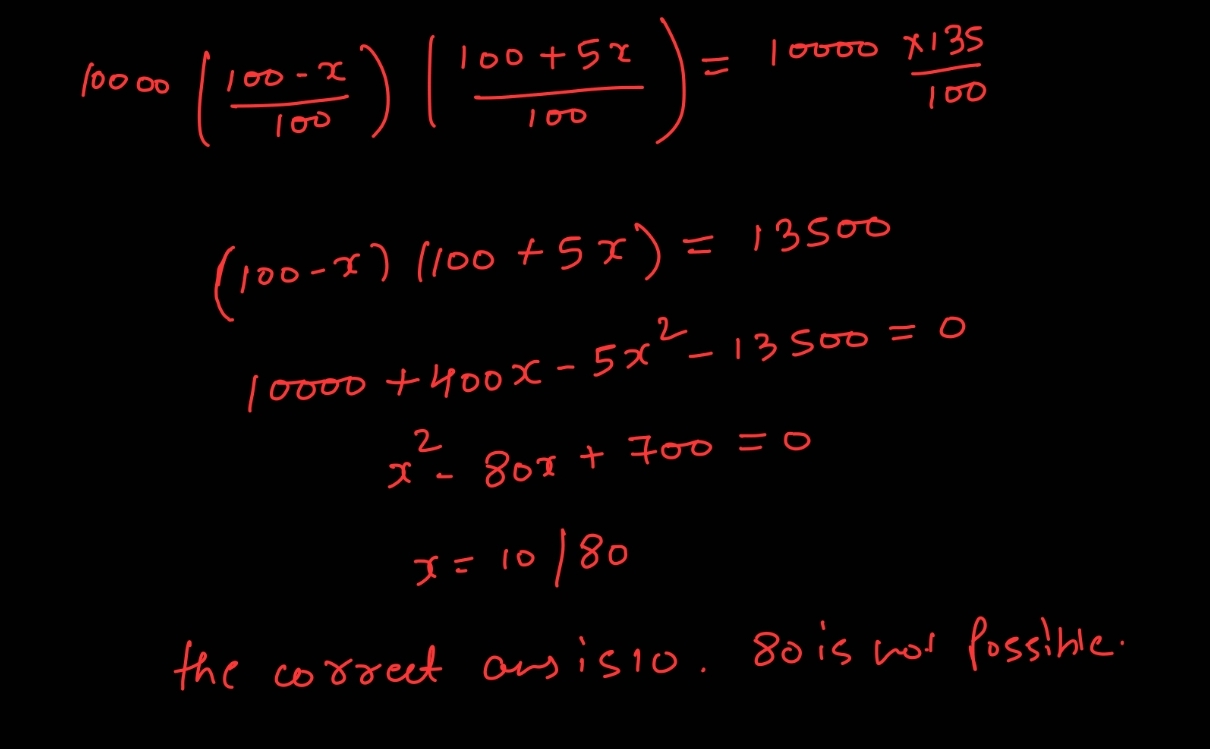 10000 ( (100 - x) / 100 ) ( (100 + 5x) / 100 ) = 10000 × 135 / 100
(100 - x) (100 + 5x) = 13500
10000 + 400x - 5x² - 13500 = 0
x² - 80x + 700 = 0
x = 10 / 80
the correct ans is 10. 80 is not possible.